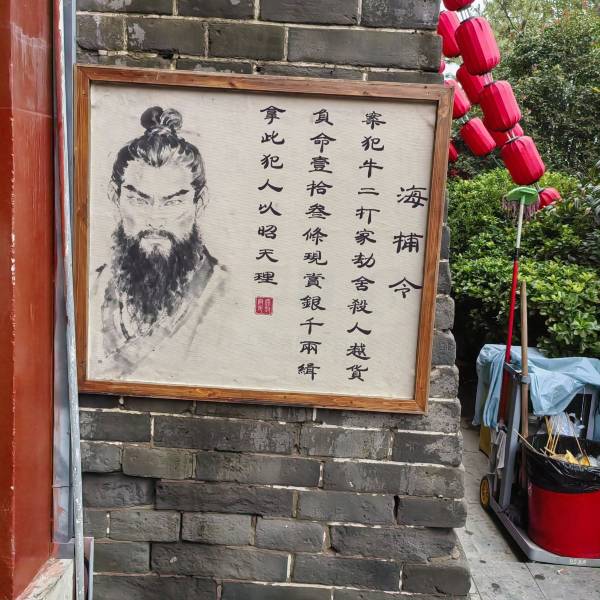 海捕令
案犯牛二打家劫舍殺人越貨
負命壹拾叁條現賞銀千兩緝
拿此犯人以昭天理